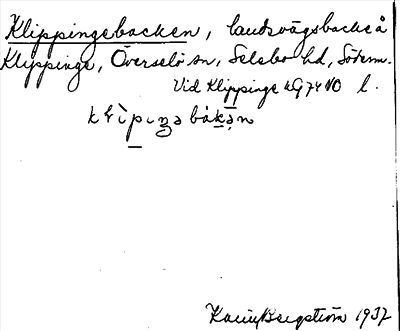 Klippingebacken, landsvägsbacke å
Klippinge, Överselö sn, Selebo hd, Söderm.
Vid Klippinge kG74NO l.
Karin Bergström 1937